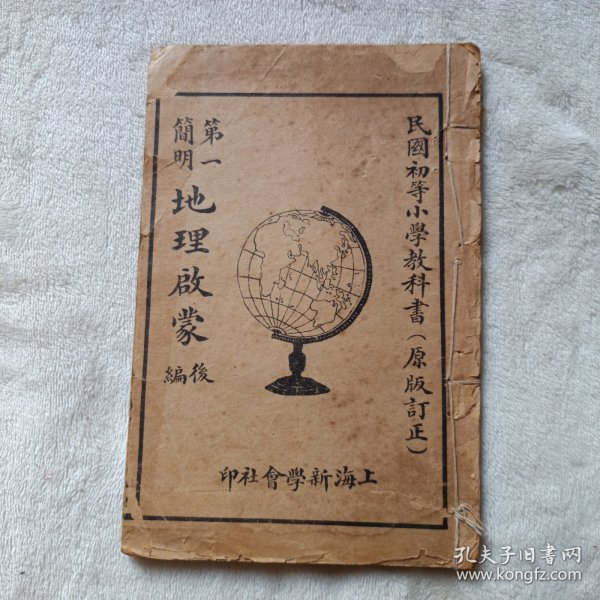 民國初等小學教科書（原版訂正）
第一簡明
地理啟蒙
後編
上海新學會社印
孔夫子旧书网
www.kongfz.com